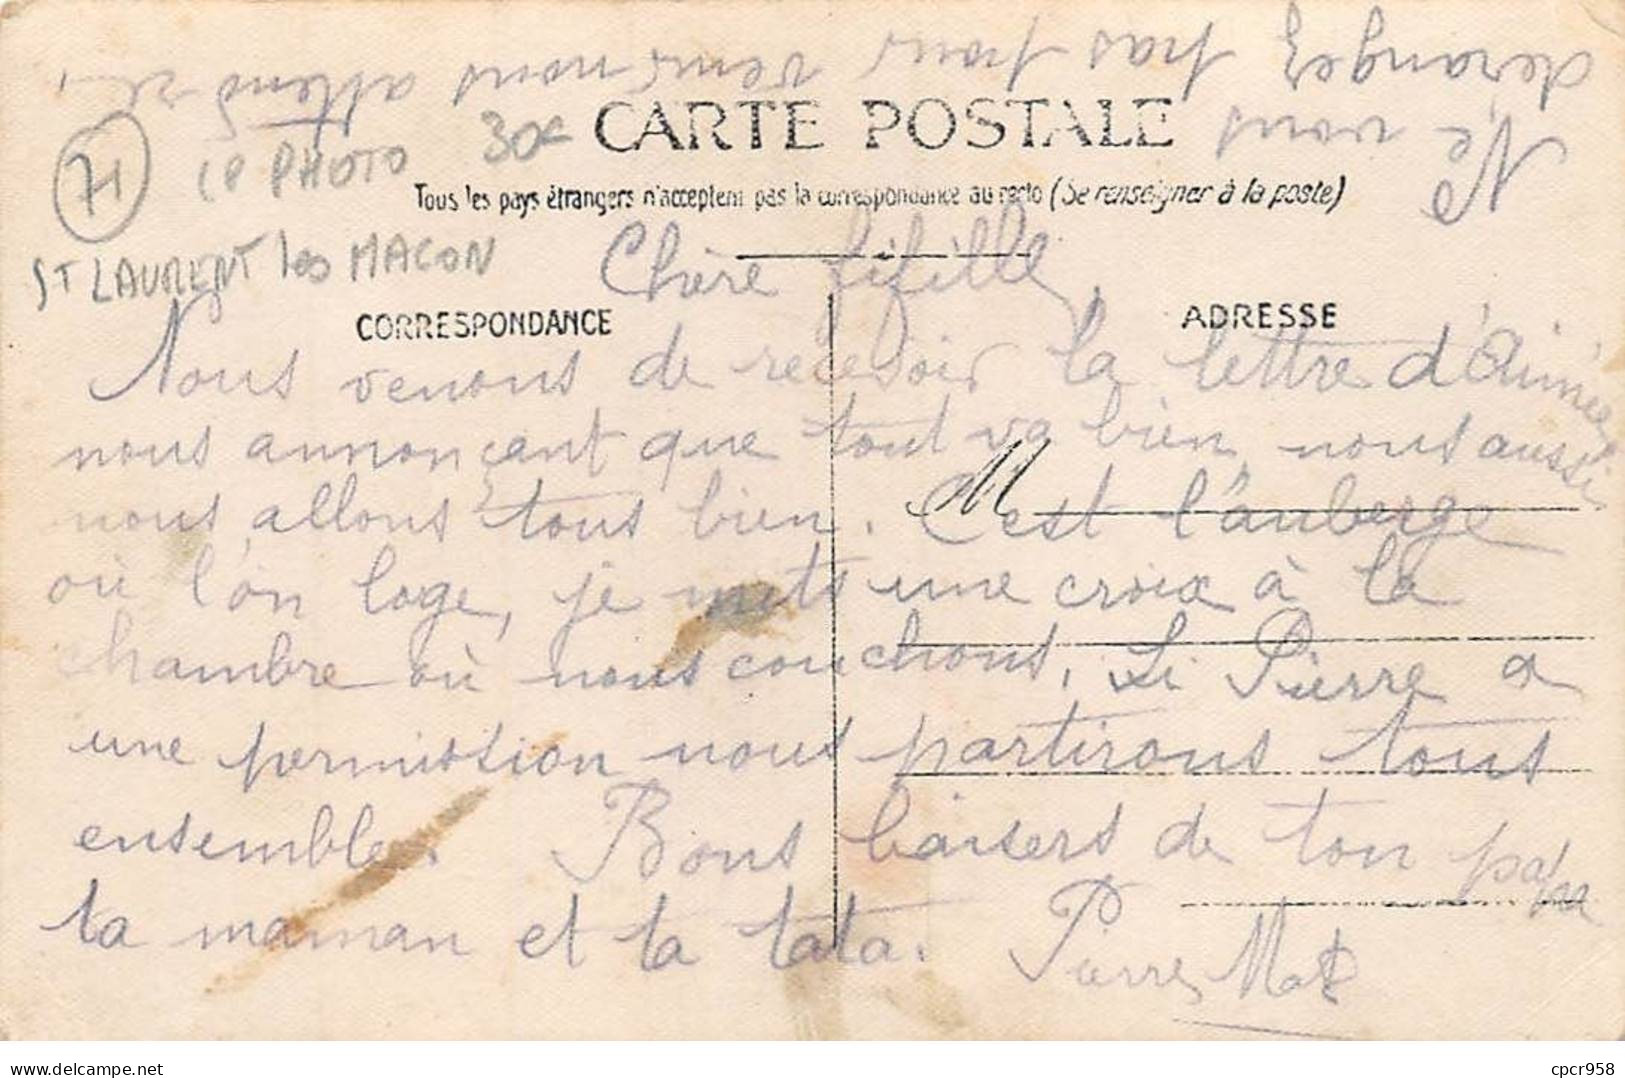 Ne vous
dérangez pas pour venir nous attendre.
71
CP PHOTO 30c
CARTE POSTALE
Tous les pays étrangers n'acceptent pas la correspondance au recto (Se renseigner à la poste)
ST LAURENT les MACON
Chère fifille,
CORRESPONDANCE
ADRESSE
Nous venons de recevoir la lettre d'Aimée
nous annonçant que tout va bien, nous aussi
nous allons tous bien. C'est l'auberge
M
où l'on loge, je mets une croix à la
chambre où nous couchons. Si Pierre a
une permission nous partirons tous
ensemble. Bons baisers de ton papa
ta maman et ta tata. Pierre
delcampe.net
cpcr958